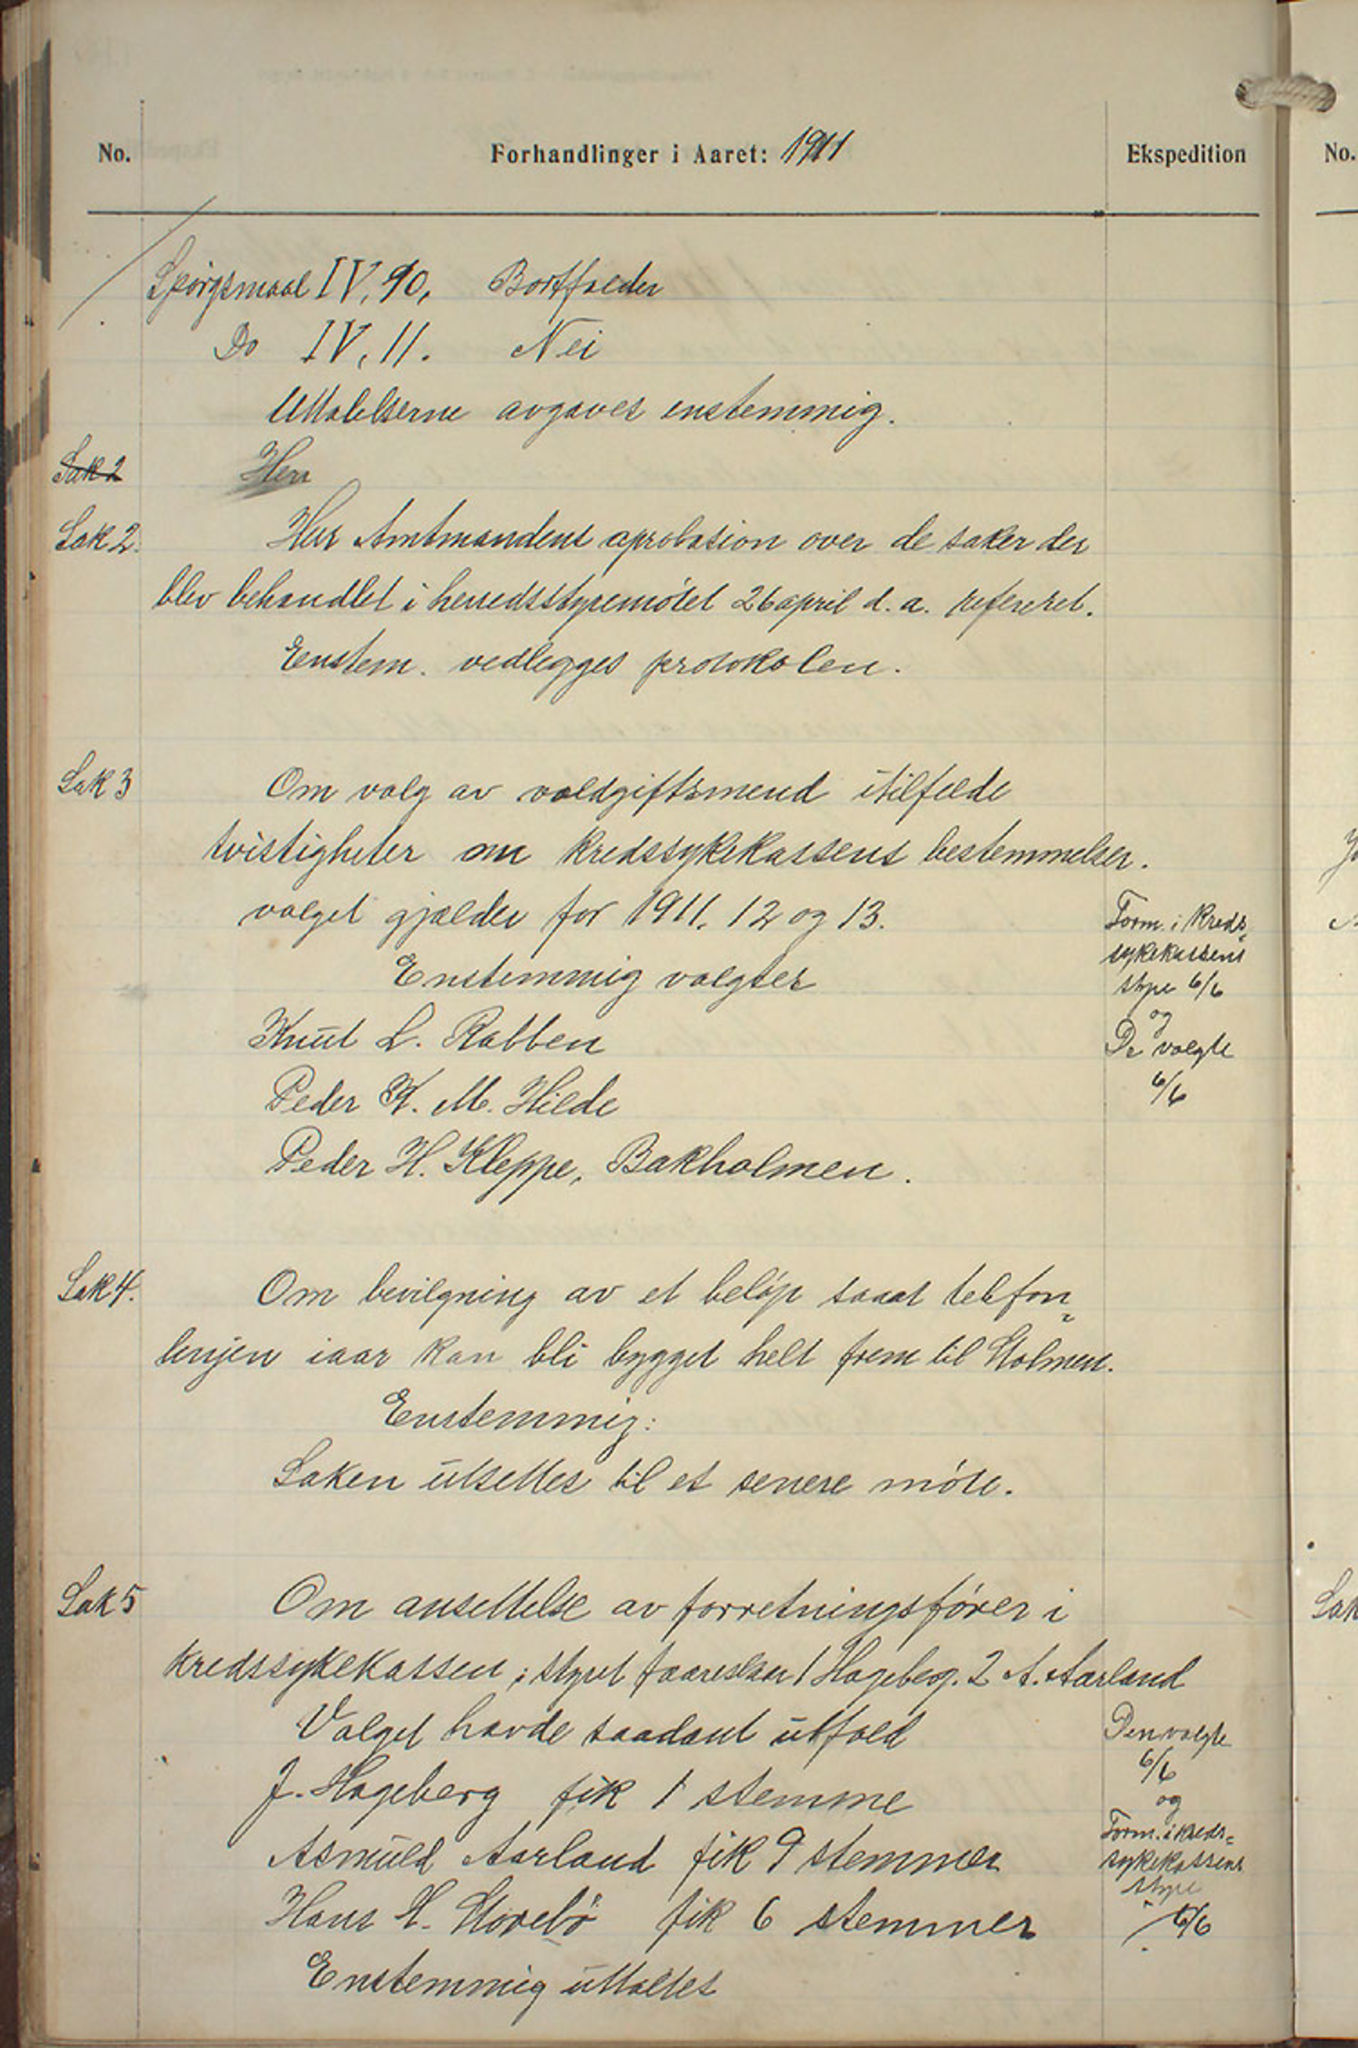 No. Forhandlinger i Aaret: 1911 Ekspedition No.
Spörgsmaal IV, 90, Bortfalder
Do IV, 11. Nei
Uttalelserne avgaves enstemmig.
Sak 2 Herr
Sak 2. Herr Amtmandens aprobasion over de saker der
blev behandlet i herredsstyremötet 26 april d. a. refereret.
Enstem. vedlegges protokolen.
Sak 3 Om valg av voldgiftsmend itilfelde
tvistigheter om kredssykekassens bestemmelser.
valget gjælder for 1911. 12 og 13.
Enstemmig valgtes
Knut L. Rabben
Peder K. M. Hilde
Peder H. Kleppe, Bakholmen.
Form. i kreds-
sykekassens
styre 6/6
og
De valgte
6/6
Sak 4. Om bevilgning av et beløp saaat telefon-
lenjen iaar kan bli bygget helt frem til Stolmen.
Enstemmig:
Saken utsettes til et senere möte.
Sak 5 Om ansettelse av forretningsfører i
kredssykekassen; styret foareslaar 1 Hageberg. 2 A. Aarland
Valget havde saadant utfald
J. Hageberg fik 1 stemme
Asmuld Aarland fik 9 stemmer
Hans H. Storebö fik 6 stemmer
Enstemmig uttaltes
Den valgte
6/6
og
Form. i kreds-
sykekassens
styre
6/6
Sak